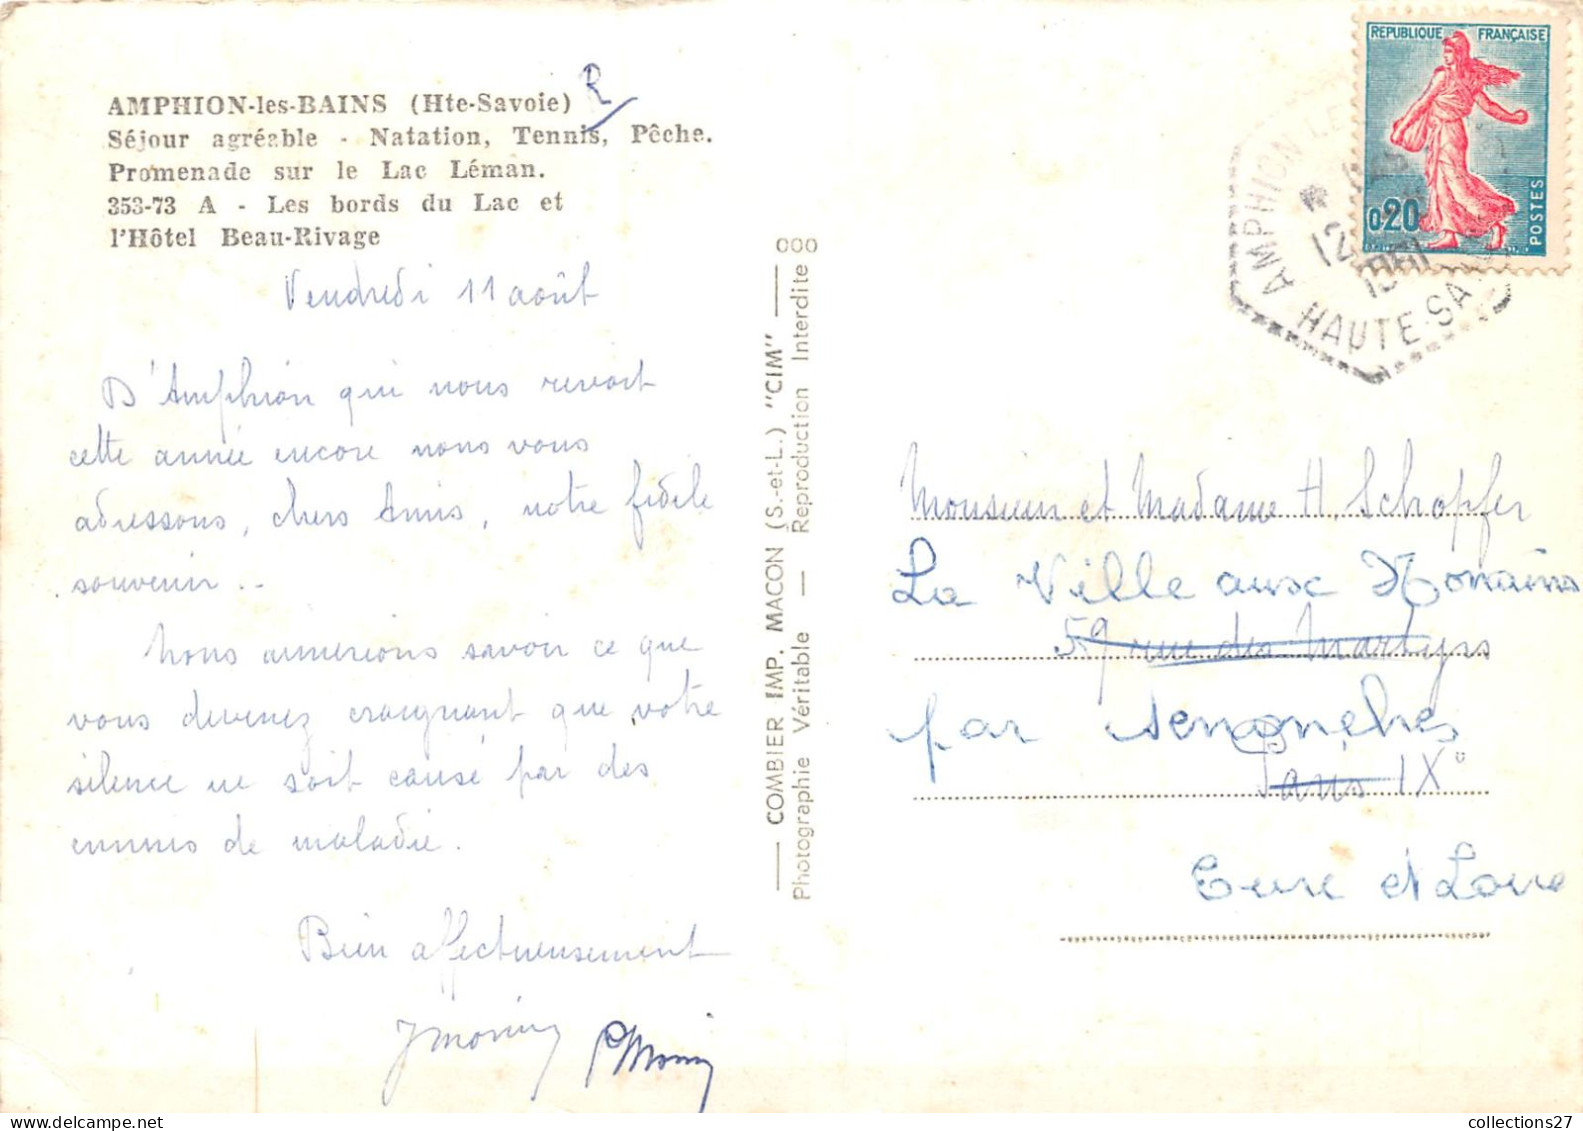 AMPHION-les-BAINS (Hte-Savoie) R
Séjour agréable - Natation, Tennis, Pêche.
Promenade sur le Lac Léman.
353-73 A - Les bords du Lac et
l'Hôtel Beau-Rivage
Vendredi 11 août
D'Amphion qui nous revoit
cette année encore nous vous
adressons, chers Amis, notre fidèle
souvenir..
Nous aimerions savoir ce que
vous devenez craignant que votre
silence ne soit causé par des
ennuis de maladie.
Bien affectueusement
JMorin PMorin
COMBIER IMP. MACON (S.-et-L.) "CIM"
Photographie Véritable — Reproduction Interdite
000
REPUBLIQUE FRANÇAISE
0,20
POSTES
AMPHION LES
12
1961
HAUTE-SA
Monsieur et Madame H. Schopfer
La Ville aux Nonains
59 rue des Martyrs
par Senonches
Paris IX°
Eure et Loire
collections27